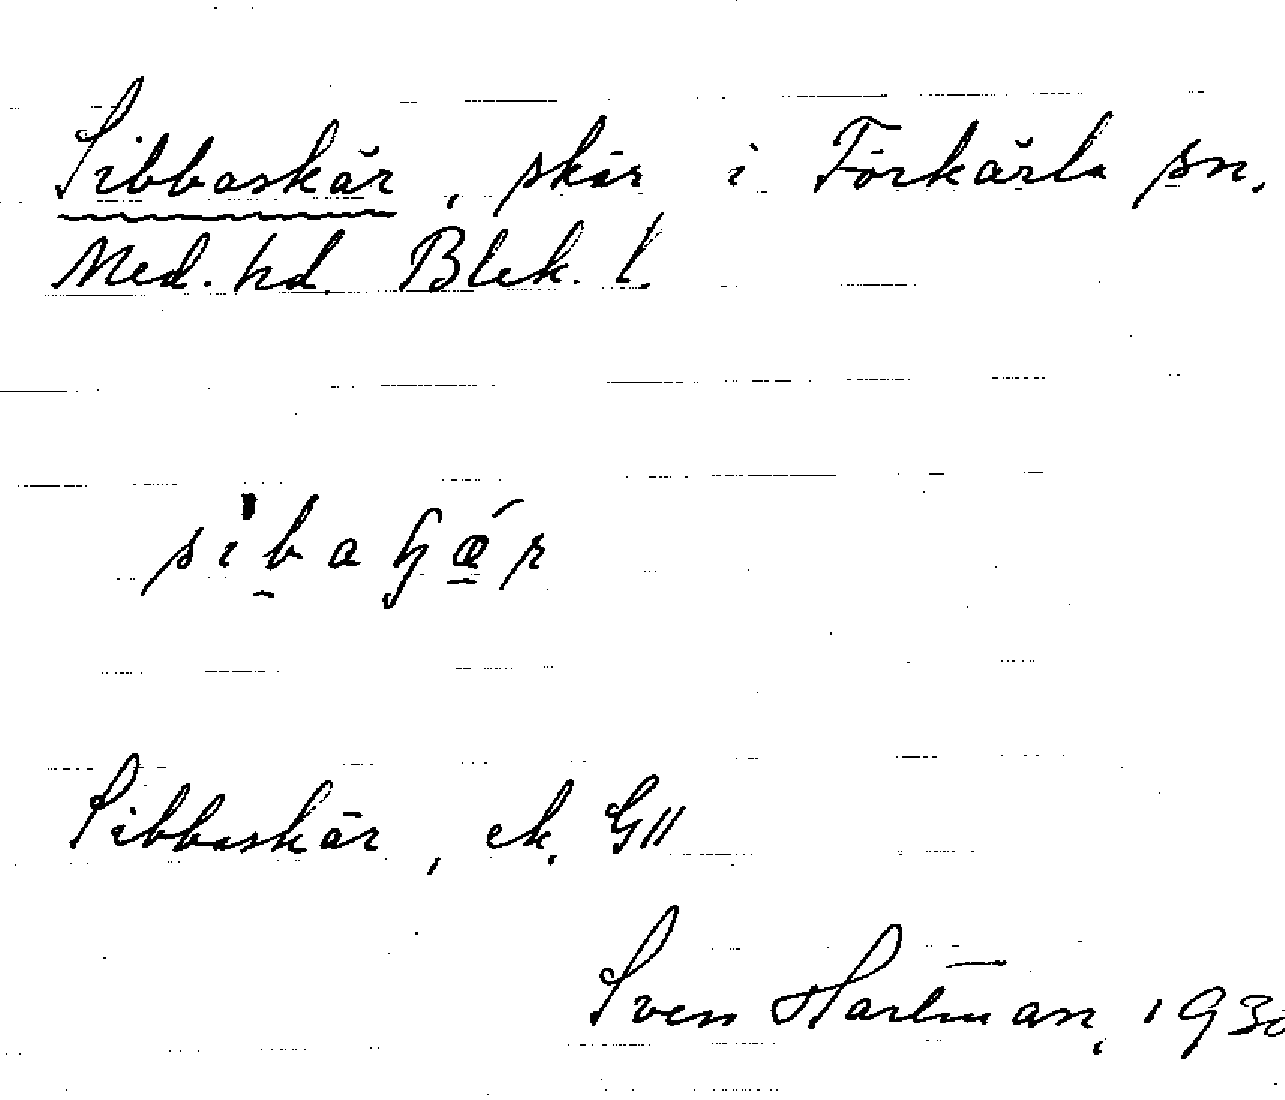 Sibbaskär, skär i Förkärla sn.
Med. hd. Blek. l.
Sibbaskär, ek. G11
Sven Hartman, 1930